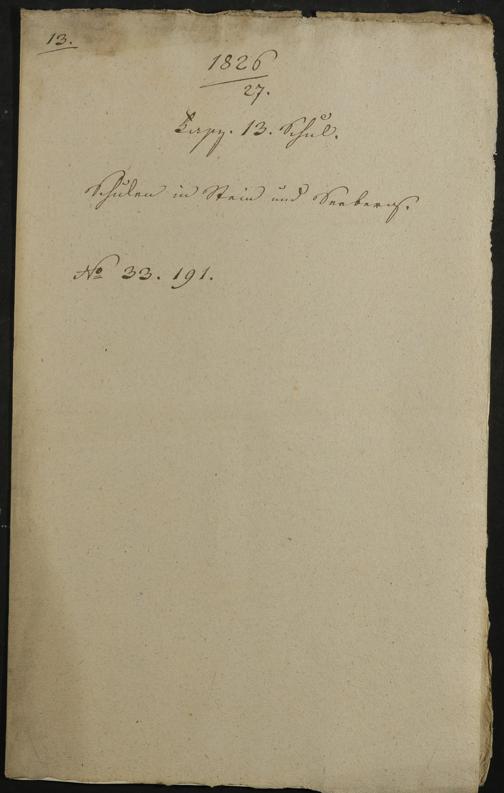 13.
1826
27.
Kapp. 13. Schul.
Schulen in Stein und Seeberg.
No 33. 191.